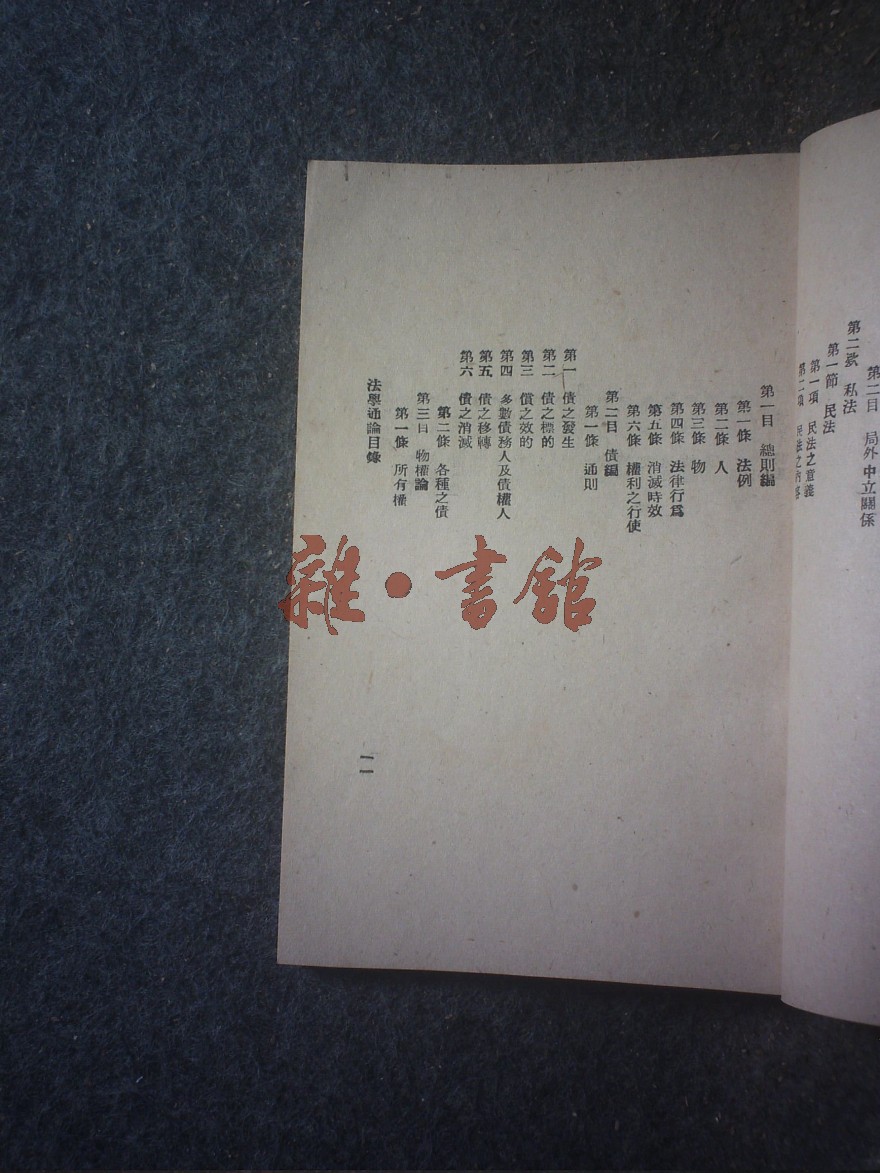 第二目　局外中立關係
第二款　私法
第一節　民法
第一項　民法之意義
第二項　民法之內容
第一目　總則編
第一條　法例
第二條　人
第三條　物
第四條　法律行爲
第五條　消滅時效
第六條　權利之行使
第二目　債編
第一條　通則
第一　債之發生
第二　債之標的
第三　債之效的
第四　多數債務人及債權人
第五　債之移轉
第六　債之消滅
第二條　各種之債
第三目　物權論
第一條　所有權
法學通論目錄
一一
雜·書館